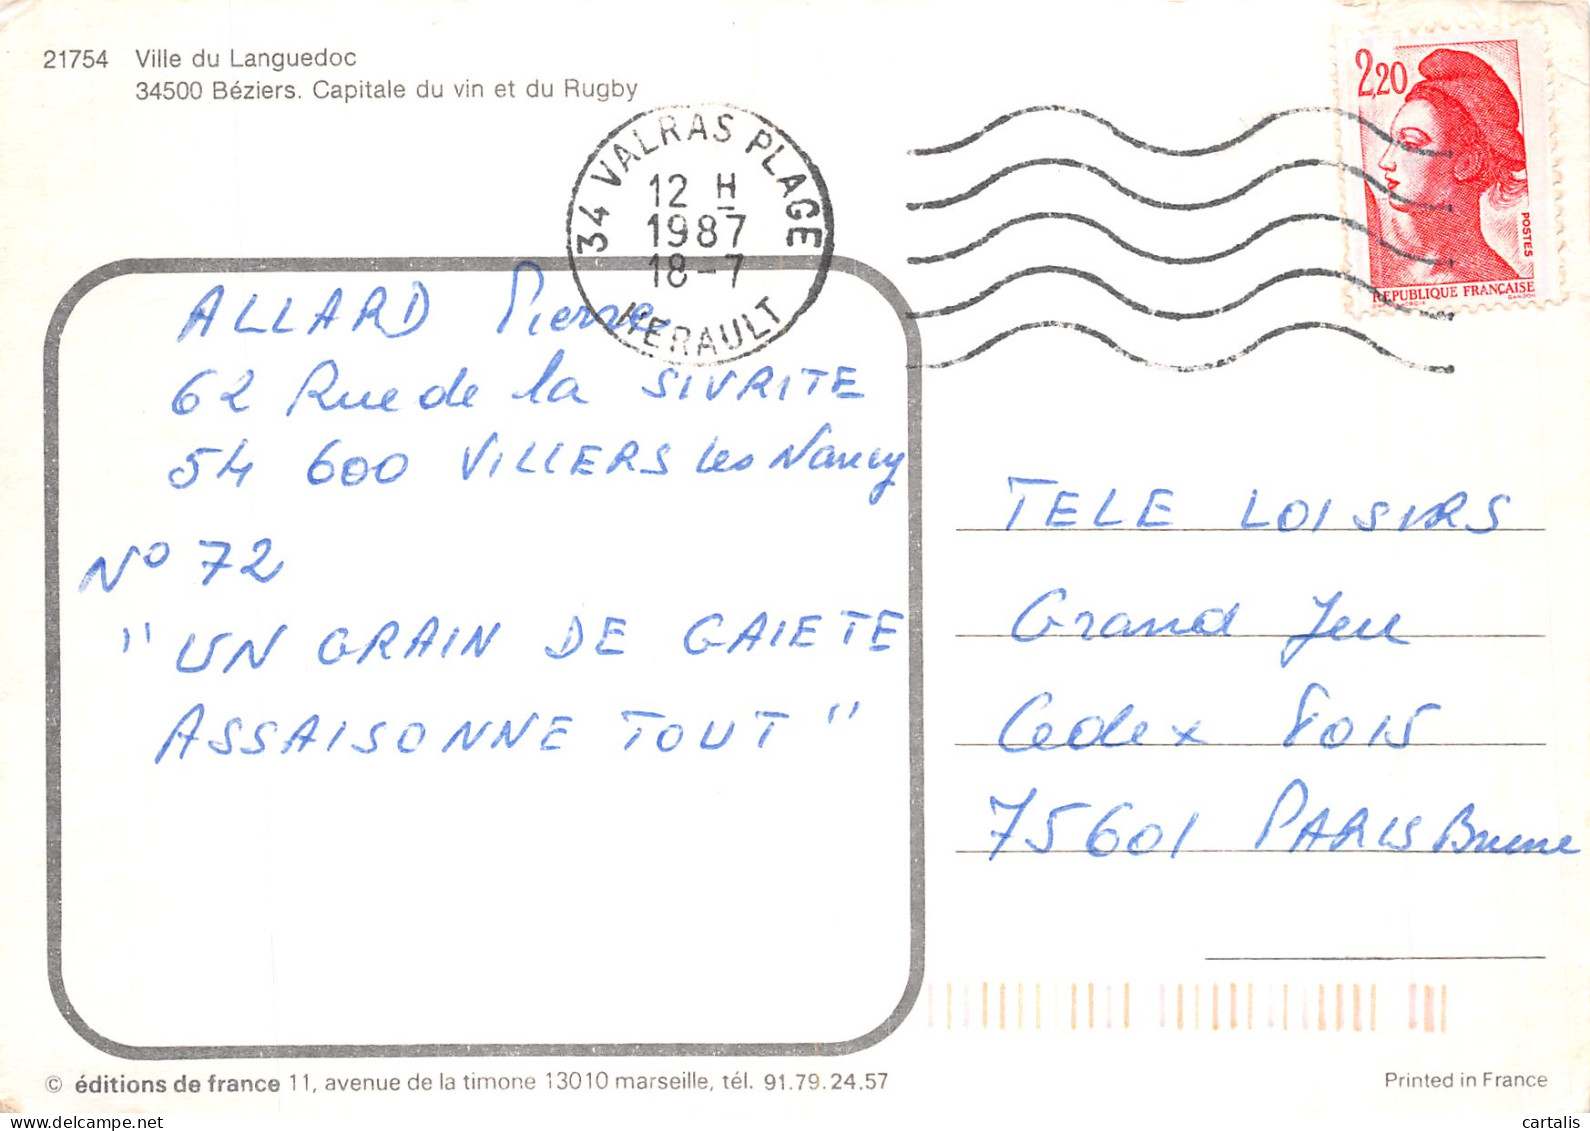 21754 Ville du Languedoc
34500 Béziers. Capitale du vin et du Rugby
34 VALRAS PLAGE
12 H
1987
18-7
HERAULT
2,20
POSTES
REPUBLIQUE FRANÇAISE
GANDON
ALLARD Pierre
62 Rue de la SIVRITE
54 600 VILLERS les Nancy
N° 72
"UN GRAIN DE GAIETE
ASSAISONNE TOUT"
TELE LOISIRS
Grand Jeu
Cedex 8015
75601 PARIS Brune
© éditions de france 11, avenue de la timone 13010 marseille, tél. 91.79.24.57
Printed in France
www.delcampe.net
cartalis